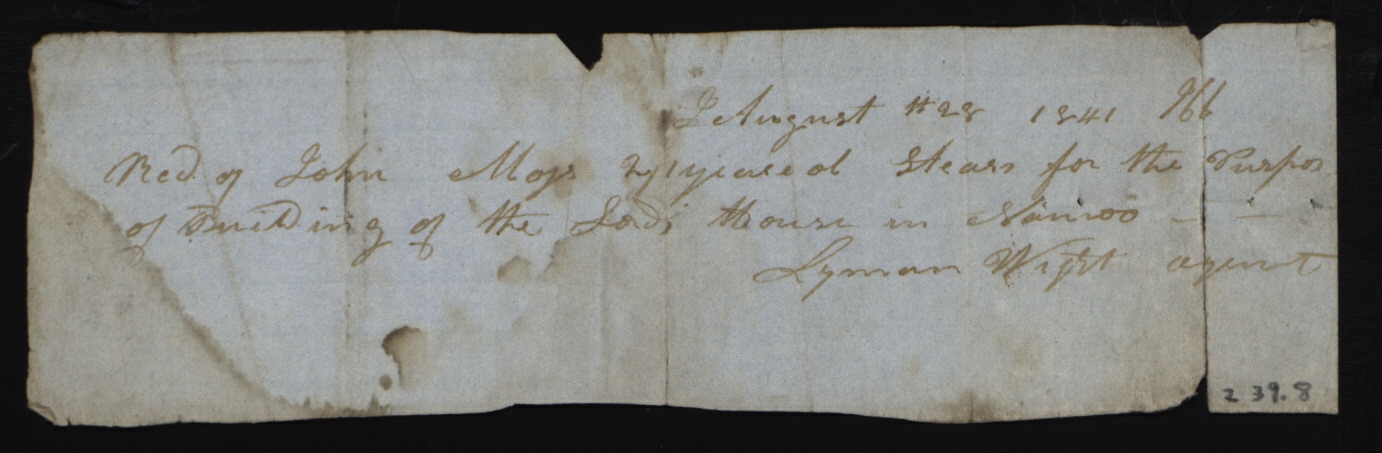 August th 28 1841
Recd. of John Moss 2 year ol Stears for the Purpos
of Building of the Lords House in Nauvoo - -
Lyman Wight agent
239.8